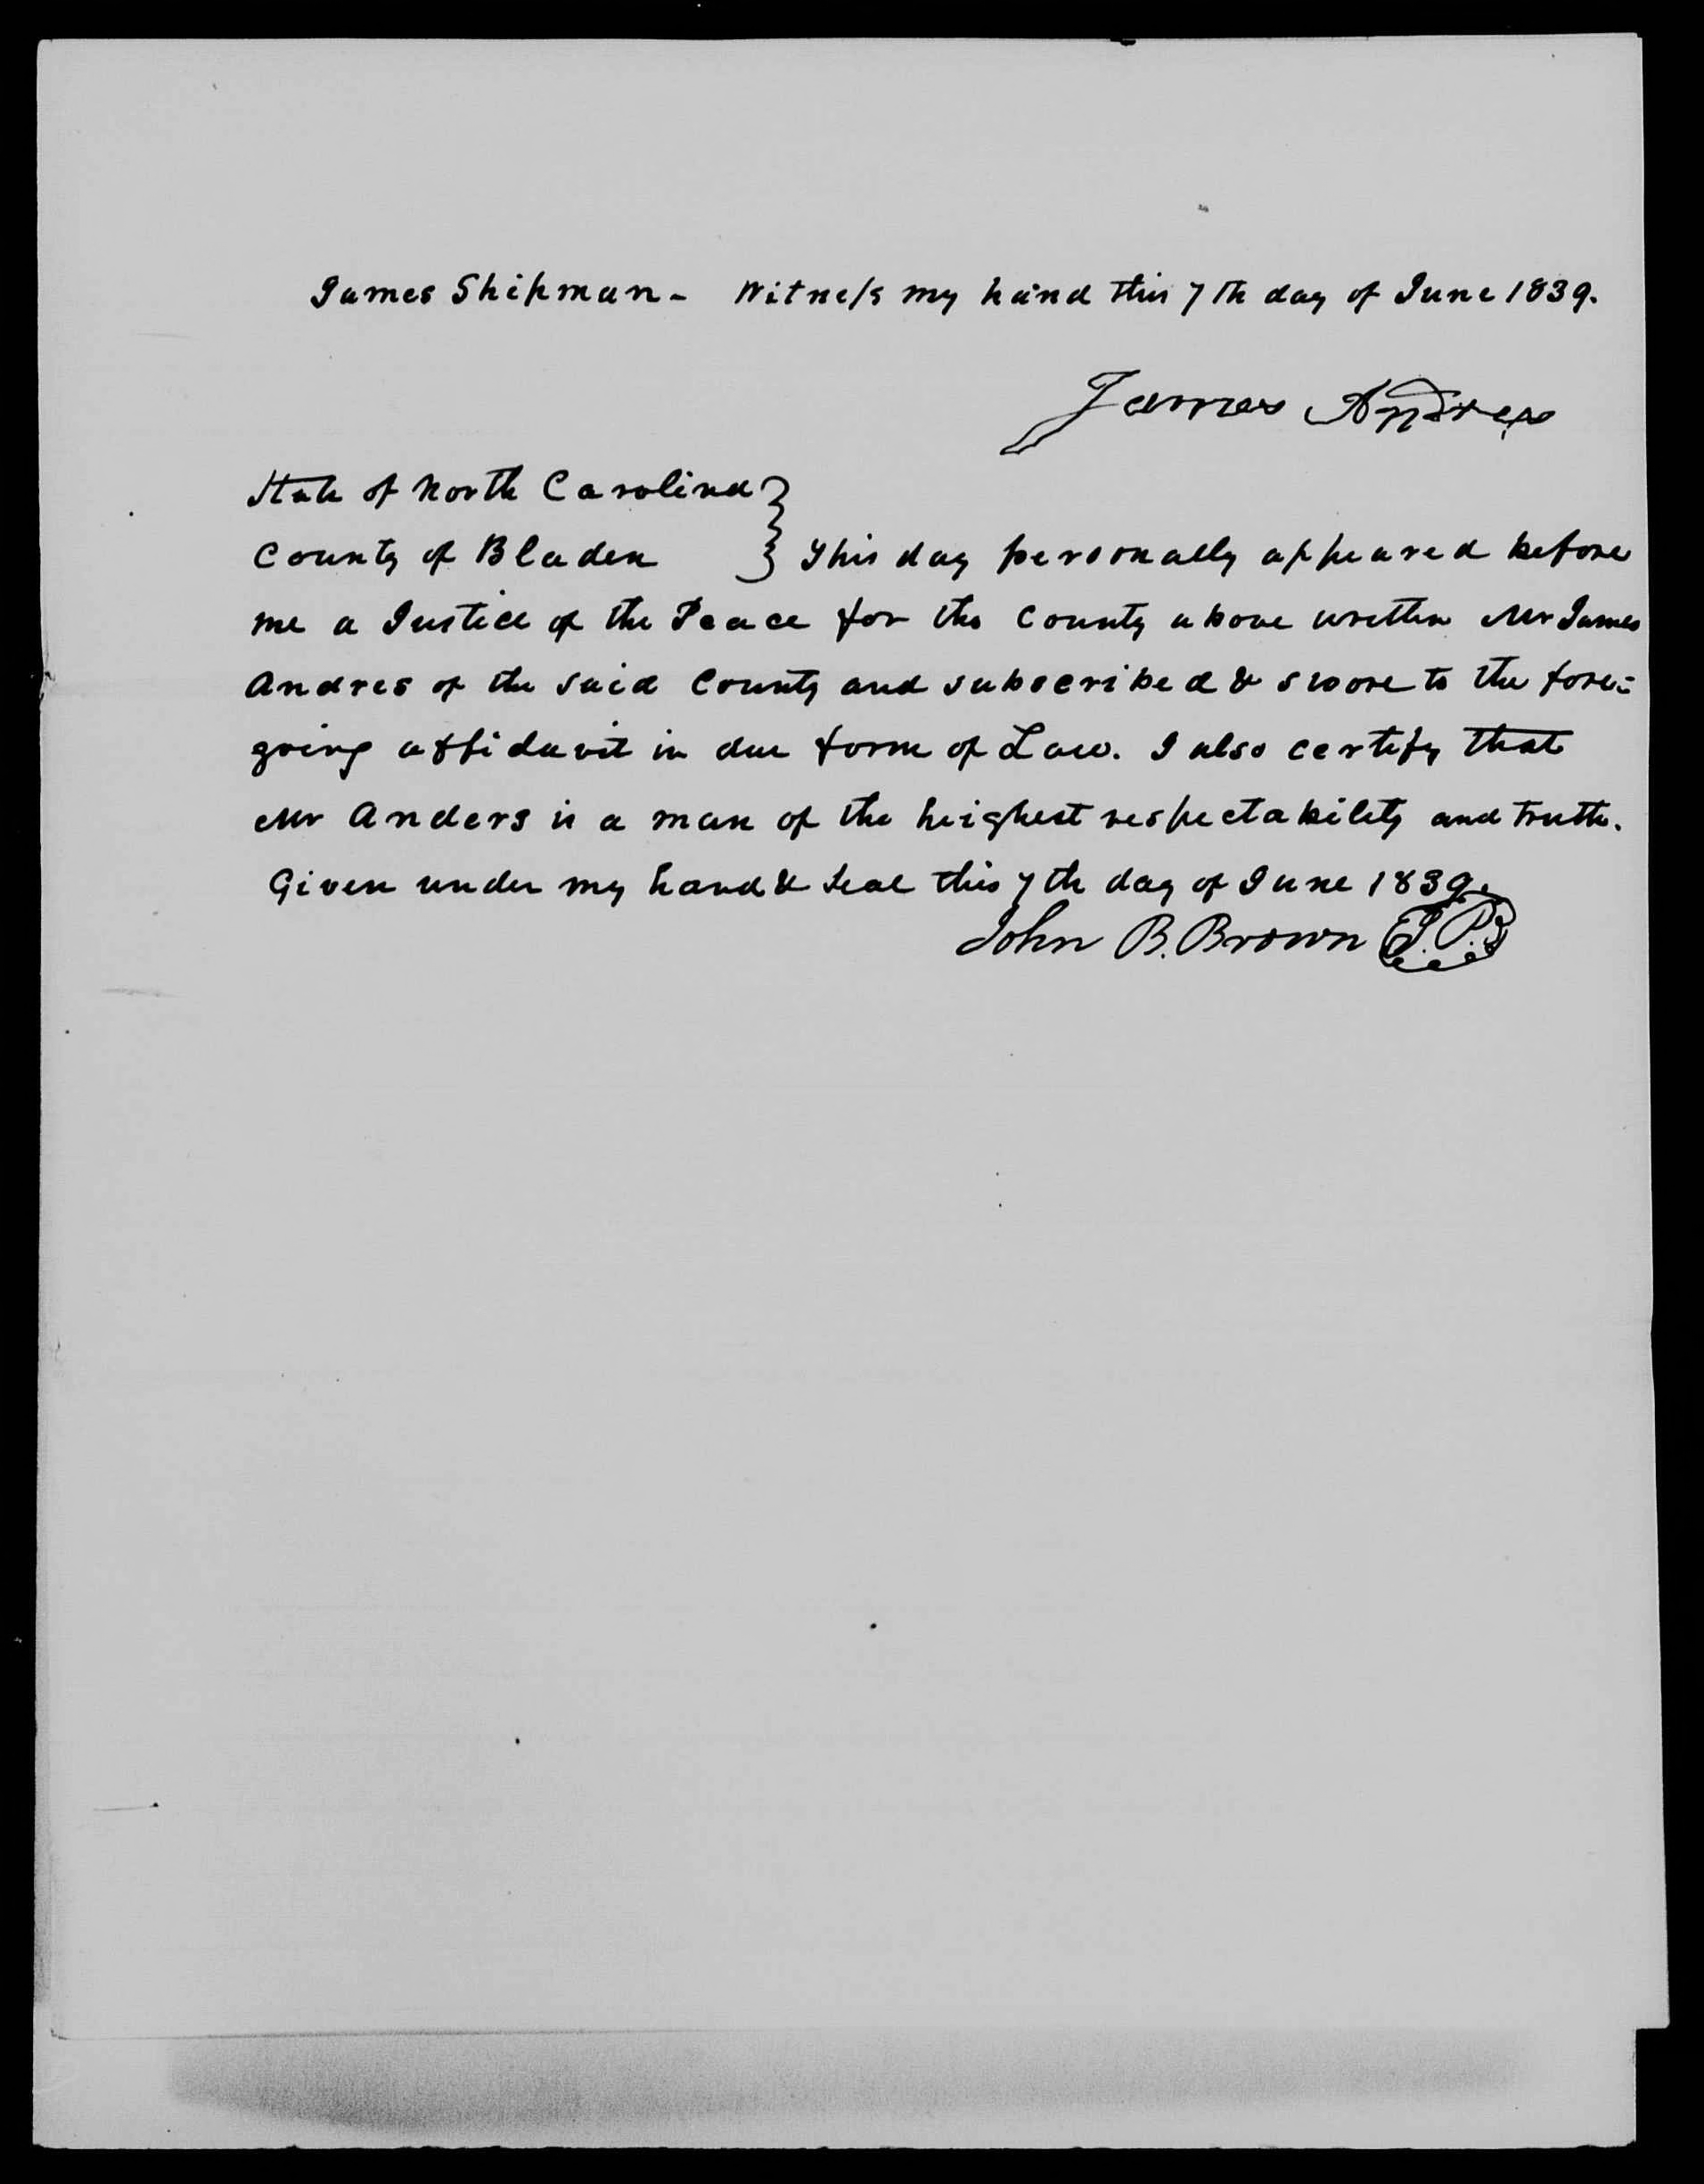 James Shipman - Witness my hand this 7th day of June 1839.
James Andres
State of North Carolina }
County of Bladen } This day personally appeared before
me a Justice of the Peace for the County above written Mr James
Andres of the said County and subscribed & swore to the fore=
going affidavit in due form of Law. I also certify that
Mr Anders is a man of the heighest respectability and truth.
Given under my hand & seal this 7th day of June 1839.
John B. Brown J.P.